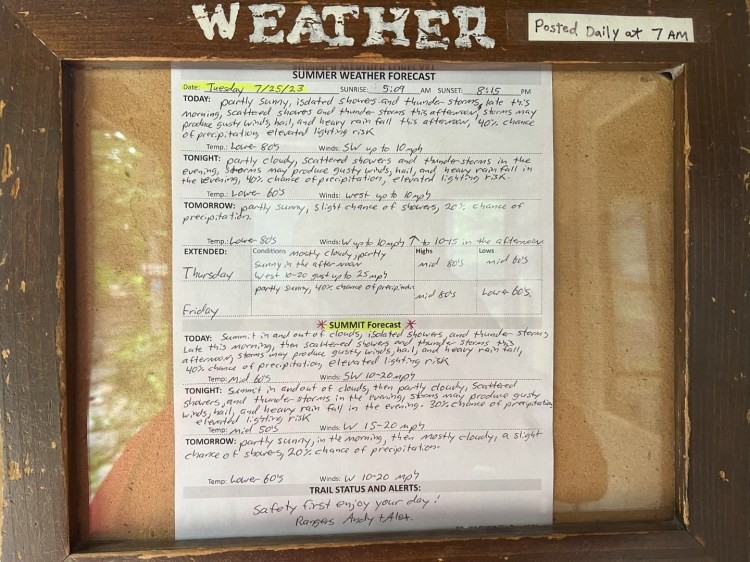 WEATHER
Posted Daily at 7 AM
SUMMER WEATHER FORECAST
Date: Tuesday 7/25/23 SUNRISE: 5:09 AM SUNSET: 8:15 PM
TODAY: partly sunny, isolated showers and thunder storms, late this
morning, scattered showers and thunder storms this afternoon, storms may
produce gusty winds, hail, and heavy rain fall this afternoon, 40% chance
of precipitation, elevated lighting risk
Temp.: Lower 80's Winds: SW up to 10 mph
TONIGHT: partly cloudy, scattered showers and thunder storms in the
evening, storms may produce gusty winds, hail, and heavy rain fall in
the evening, 40% chance of precipitation, elevated lighting risk.
Temp: Lower 60's Winds: west up to 10 mph
TOMORROW: partly sunny, slight chance of showers, 20% chance of
precipitation.
Temp.: Lower 80's Winds: W up to 10 mph ↑ to 10-15 in the afternoon
EXTENDED: Conditions mostly cloudy, partly Highs Lows
Thursday sunny in the afternoon mid 80's mid 60's
West 10-20 gust up to 25 mph
partly sunny, 40% chance of
Friday mid 80's Lower 60's
* SUMMIT Forecast *
TODAY: Summit in and out of clouds, isolated showers, and thunder storms
Late this morning, then scattered showers and thunder storms this
afternoon, storms may produce gusty winds, hail, and heavy rain fall,
40% chance of precipitation, elevated lighting risk
Temp: Mid 60's Winds: SW 10-20 mph
TONIGHT: Summit in and out of clouds, then partly cloudy, scattered
showers, and thunder storms in the evening, storms may produce gusty
winds, hail, and heavy rain fall in the evening. 30% chance of precipitation
elevated lighting risk
Temp: mid 50's Winds: W 15-20 mph
TOMORROW: partly sunny, in the morning, then mostly cloudy, a slight
chance of showers, 20% chance of precipitation.
Temp: Lower 60's Winds: W 10-20 mph
TRAIL STATUS AND ALERTS:
Safety first enjoy your day!
Rangers Andy + Alex.